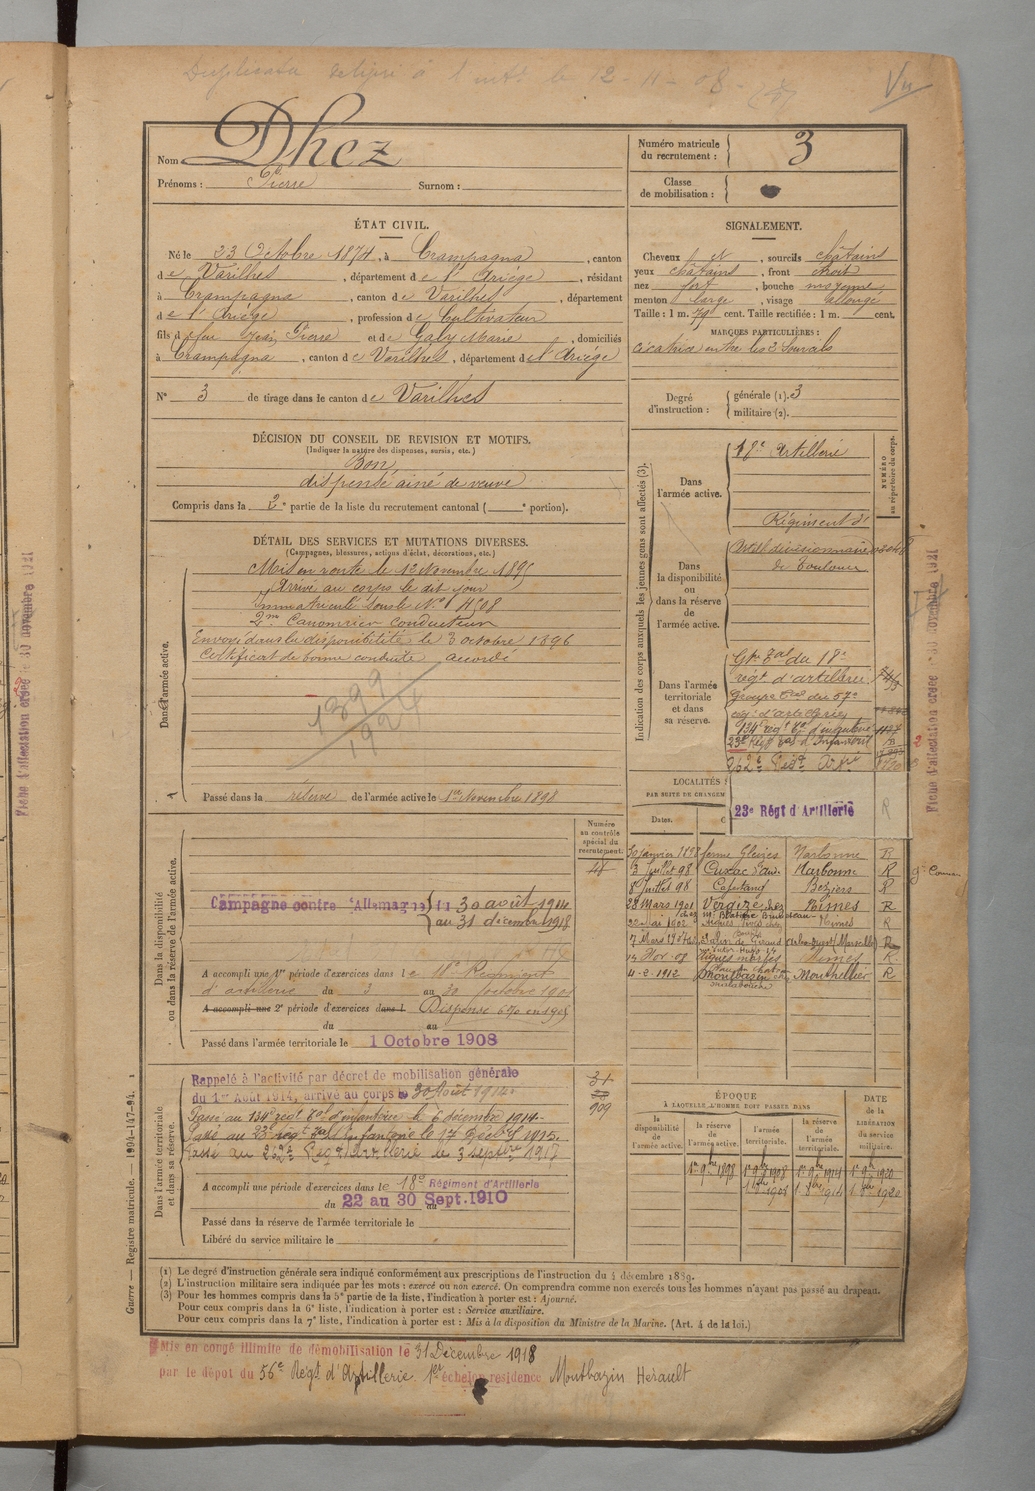 Duplicata
Vu
Nom Dhez
Prénoms : Pierre Surnom :
Numéro matricule du recrutement : 3
Classe de mobilisation :
ÉTAT CIVIL.
Né le 23 Octobre 1874, à Crampagna, canton
de Varilhes, département de l'Ariège, résidant
à Crampagna, canton de Varilhes, département
de l'Ariège, profession de Cultivateur
fils de feu Jean Pierre et de Gaby Marie, domiciliés
à Crampagna, canton de Varilhes, département de l'Ariège
N° 3 de tirage dans le canton de Varilhes
SIGNALEMENT.
Cheveux et, sourcils châtains
yeux châtains, front étroit
nez fort, bouche moyenne,
menton large, visage allongé
Taille : 1 m. 79 cent. Taille rectifiée : 1 m. cent.
MARQUES PARTICULIÈRES :
Cicatrice entre les 2 sourcils
Degré d'instruction : générale (1). 3
militaire (2).
DÉCISION DU CONSEIL DE REVISION ET MOTIFS.
(Indiquer la nature des dispenses, sursis, etc.)
Bon
dispensé aîné de veuve
Compris dans la 2e partie de la liste du recrutement cantonal ( e portion).
DÉTAIL DES SERVICES ET MUTATIONS DIVERSES.
(Campagnes, blessures, actions d'éclat, décorations, etc.)
Dans l'armée active.
Mis en route le 12 Novembre 1895
Arrivé au corps le dit jour
Immatriculé sous le N°
2me Canonnier conducteur
Envoyé dans la disponibilité le 3 octobre 1896
Certificat de bonne conduite accordé
1399
1924
Passé dans la réserve de l'armée active le 1er Novembre 1898
Indication des corps auxquels les jeunes gens sont affectés (3).
NUMÉRO au répertoire du corps.
Dans l'armée active.
18e Artillerie
Dans la disponibilité ou dans la réserve de l'armée active.
Régiment d'
Artie divisionnaire
de Toulouse
Dans l'armée territoriale et dans sa réserve.
Gpe Tal du 18e
régt d'artillerie
Groupe Tal du 57e
régt d'artillerie
134e regt Tal d'infanterie
23e Régt Tal d'Infanterie
262e Régt Artie
23e Régt d'Artillerie R
LOCALITÉS
PAR SUITE DE CHANGEM
Dates.
30 janvier 1898 ferme Narbonne R
3 Juillet 98 Cuxac d'Au. Narbonne R
8 Juillet 98 Capestang Béziers R
22 Mars 1901 chez Nimes R
22 Mai 1902 Nimes R
7 Mars 190 Salin de Giraud (Marseille) R
14 Nov. 08 Aigues mortes Nimes R
4-2-1912 Montbazin Montpellier R
Dans la disponibilité ou dans la réserve de l'armée active.
Numéro au contrôle spécial du recrutement.
Campagne contre l'Allemagne du 30 août 1914
au 31 décembre 1918
A accompli une 1re période d'exercices dans le Régiment
d'artillerie du 3 au 30 octobre 1901
A accompli une 2e période d'exercices dans l Dispensé en 1905
du au
Passé dans l'armée territoriale le 1 Octobre 1908
Dans l'armée territoriale et dans sa réserve.
Rappelé à l'activité par décret de mobilisation générale
du 1er Août 1914, arrivé au corps le 30 Août 1914.
Passé au 134e régt Tal d'infanterie le 6 décembre 1914.
Passé au 23e régt Tal Infanterie le 17 1915.
Passé au 262e Regt artillerie le 3 septbre 1917
31
909
A accompli une période d'exercices dans le 18e Régiment d'Artillerie
du 22 au 30 Sept. 1910
Passé dans la réserve de l'armée territoriale le
Libéré du service militaire le
ÉPOQUE
À LAQUELLE L'HOMME DOIT PASSER DANS
DATE de la LIBÉRATION du service militaire.
la disponibilité de l'armée active.
la réserve de l'armée active.
l'armée territoriale.
la réserve de l'armée territoriale.
1er 9bre 1898 1er 9bre 1908 1er 9bre 1914 1er 9bre 1920
1 8bre 1908 1 8bre 1914 1 8bre 1920
(1) Le degré d'instruction générale sera indiqué conformément aux prescriptions de l'instruction du 4 décembre 1889.
(2) L'instruction militaire sera indiquée par les mots : exercé ou non exercé. On comprendra comme non exercés tous les hommes n'ayant pas passé au drapeau.
(3) Pour les hommes compris dans la 5e partie de la liste, l'indication à porter est : Ajourné.
Pour ceux compris dans la 6e liste, l'indication à porter est : Service auxiliaire.
Pour ceux compris dans la 7e liste, l'indication à porter est : Mis à la disposition du Ministre de la Marine. (Art. 4 de la loi.)
Mis en congé illimité de démobilisation le 31 Décembre 1918
par le dépôt du 56e Régt d'Artillerie 1er échelon résidence Montbazin Hérault
Guerre — Registre matricule. — 1994-147-94.
Fiche d'affectation créée le 30 novembre 1921
Fiche d'affectation créée le 30 novembre 1921